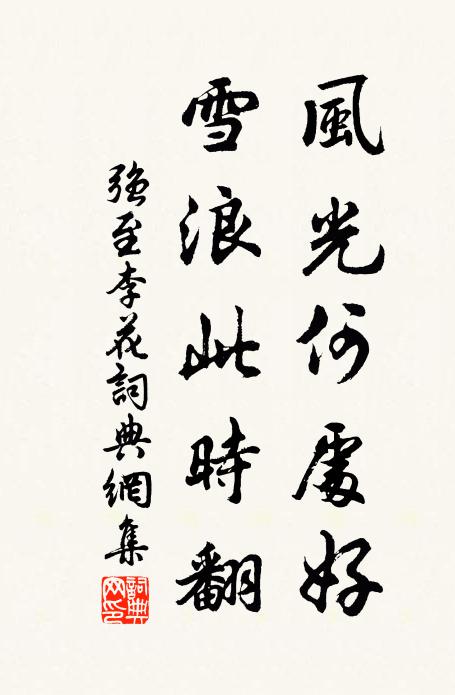 風光何處好
雪浪此時翻
強至李花詞典網集
詞典网印